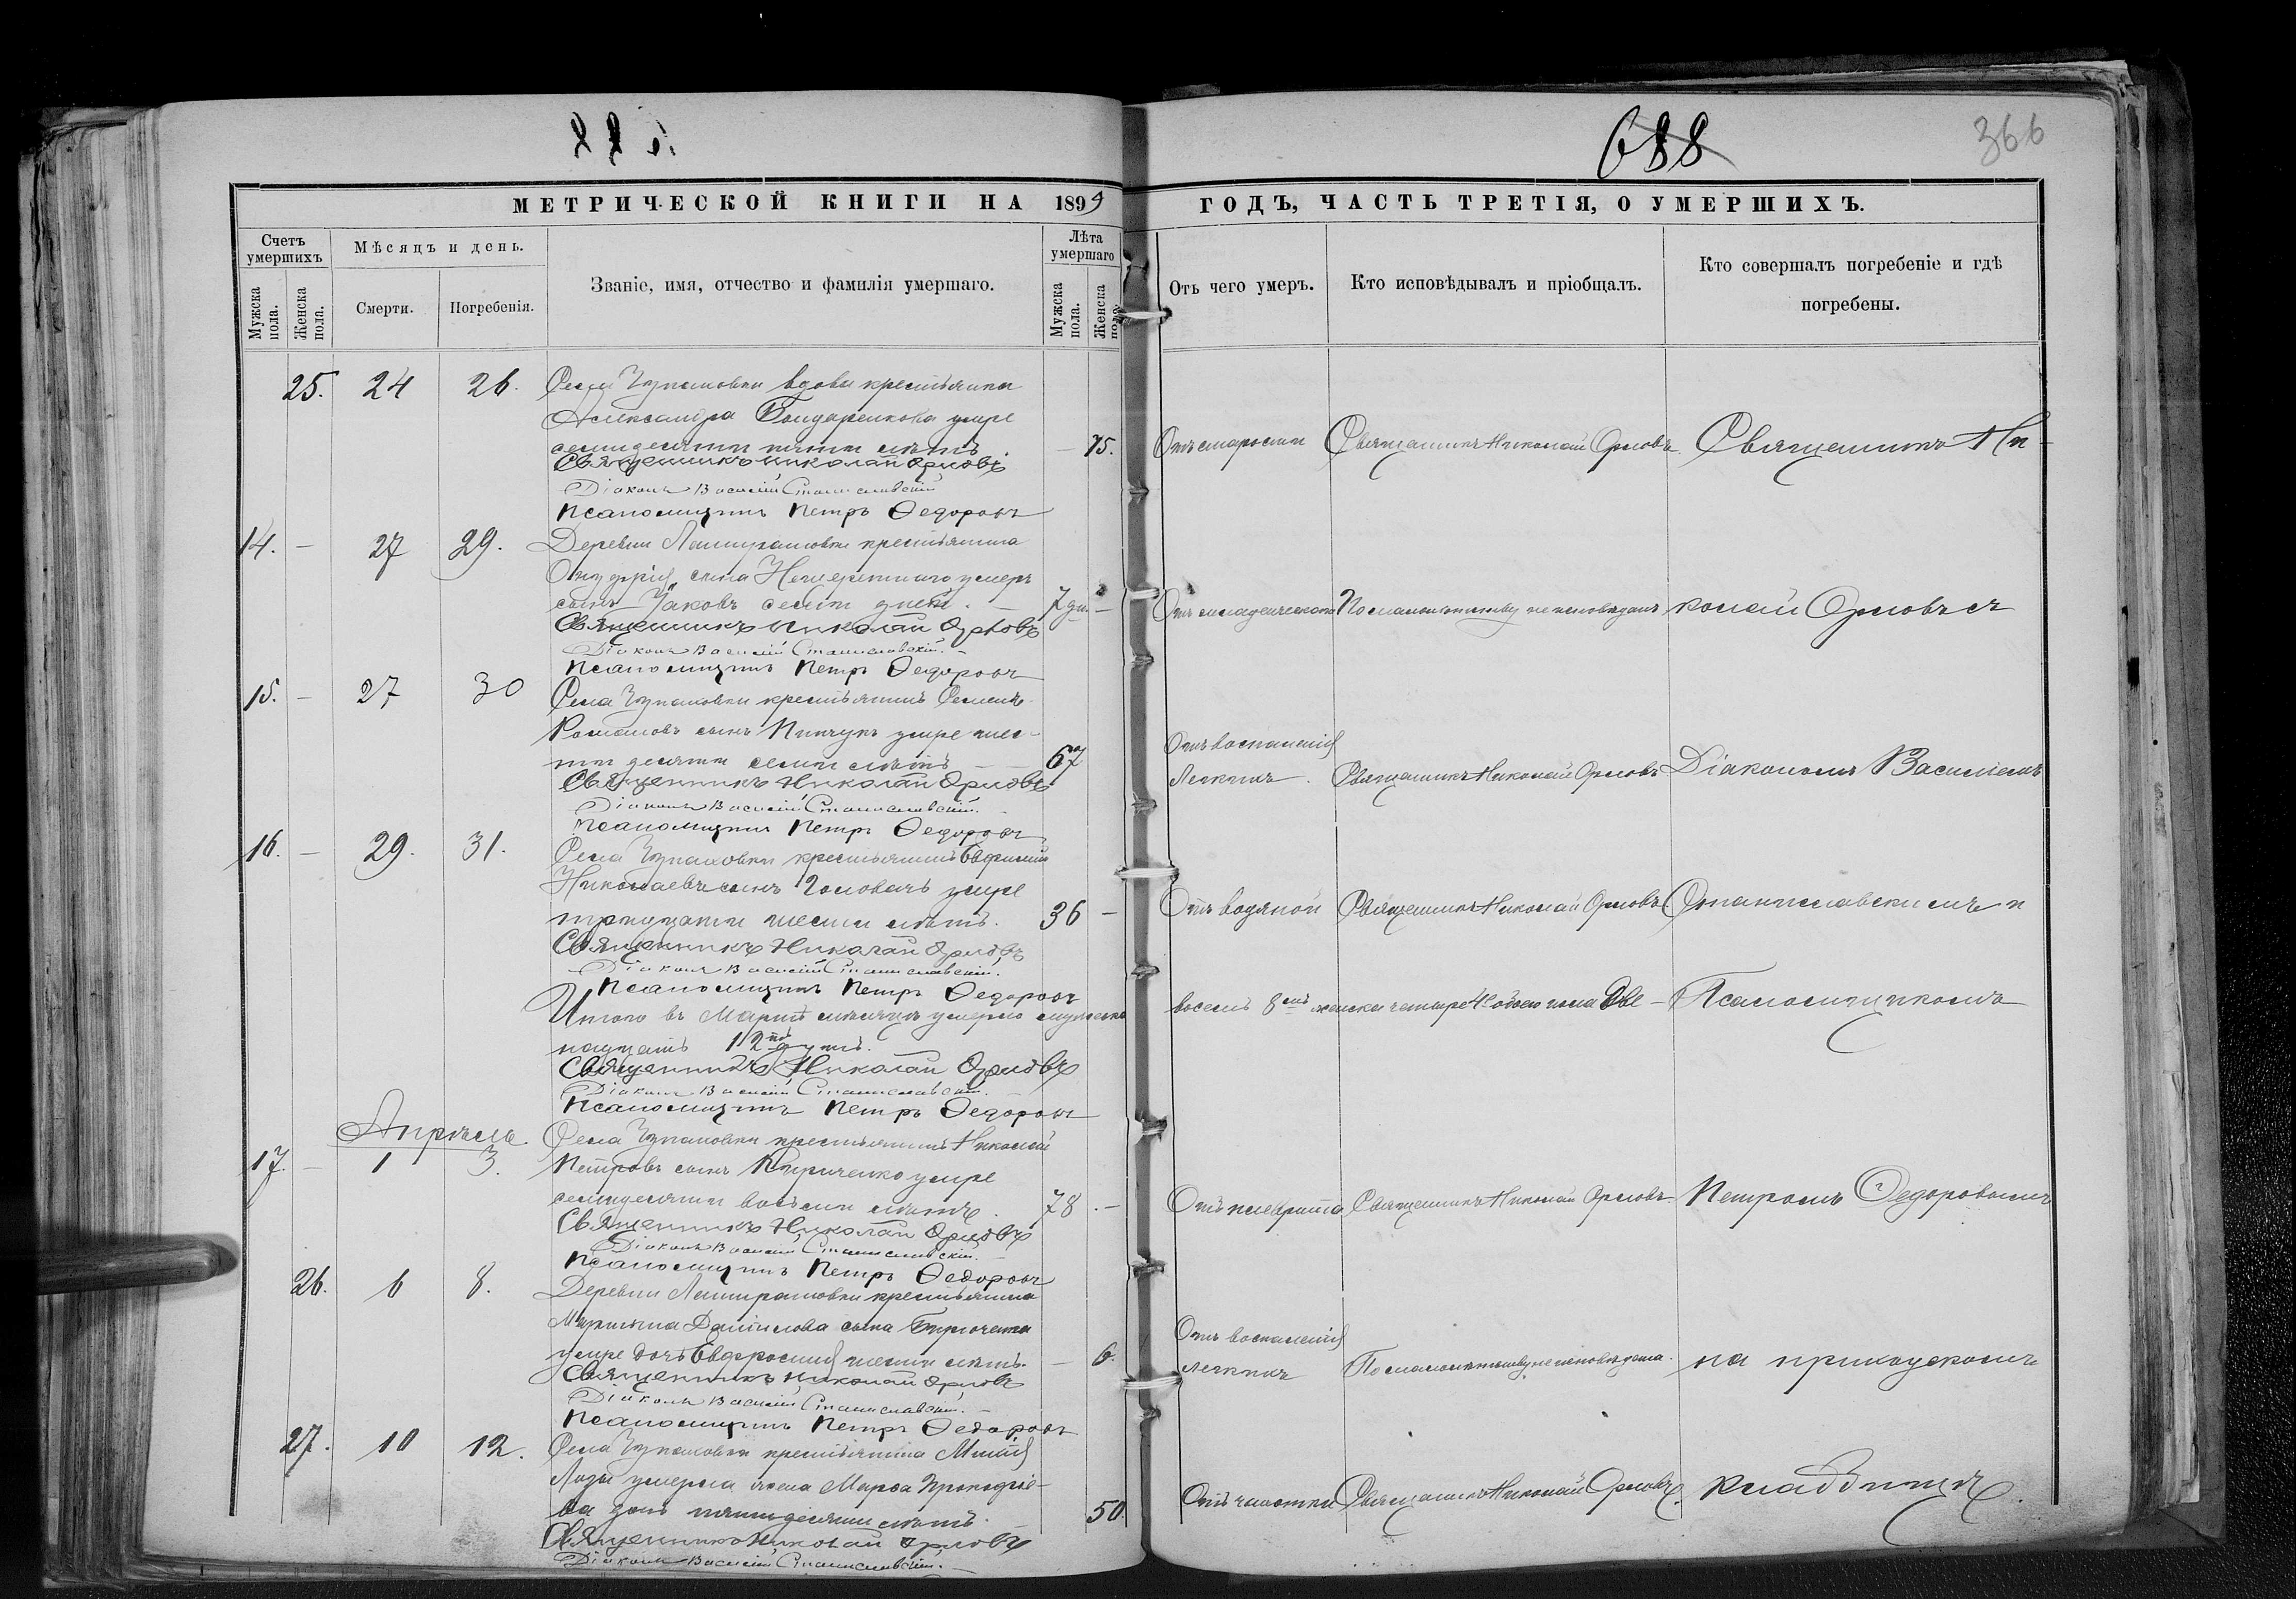 688
366
МЕТРИЧЕСКОЙ КНИГИ НА 1899
ГОДЪ, ЧАСТЬ ТРЕТІЯ, О УМЕРШИХЪ.
Счетъ умершихъ
Мужска пола.
Женска пола.
Мѣсяцъ и день.
Смерти.
Погребенія.
Званіе, имя, отчество и фамилія умершаго.
Лѣта умершаго
Мужска пола.
Женска пола.
Отъ чего умеръ.
Кто исповѣдывалъ и пріобщалъ.
Кто совершалъ погребеніе и гдѣ
погребены.
25. 24 26. Села вдова крестьянка
Александра Бондаренкова умре
семидесяти пяти лѣтъ. — 75. Отъ старости Священникъ Николай Орловъ Священникъ Ни-
Священникъ Николай Орловъ
Діаконъ Василій Станиславскій
Псаломщикъ Петръ Ѳедоровъ
14. — 27 29. Деревни крестьянина
Онуфрія сына умеръ
сынъ Яковъ семи дней. — 7 дн. — Отъ младенческой По малолѣтству не исповѣданъ колай Орловъ съ
Священникъ Николай Орловъ
Діаконъ Василій Станиславскій.
Псаломщикъ Петръ Ѳедоровъ
15. — 27 30 Села крестьянинъ Семенъ
Романовъ сынъ Пинчукъ умре шес-
ти десяти семи лѣтъ — 67
Отъ воспаленія
Легкихъ. Священникъ Николай Орловъ Діакономъ Василіемъ
Священникъ Николай Орловъ
Діаконъ Василій Станиславскій.
Псаломщикъ Петръ Ѳедоровъ
16. — 29. 31. Села крестьянинъ Евфимій
Николаевъ сынъ Головачъ умре
тридцати шести лѣтъ. 36 — Отъ водяной Священникъ Николай Орловъ Станиславскимъ и
Священникъ Николай Орловъ
Діаконъ Василій Станиславскій.
Псаломщикъ Петръ Ѳедоровъ
Итого въ Мартѣ мѣсяцѣ умерло мужеска
восемь 8мь женска четыре 4 обоего пола две- Псаломщикомъ
надцать 12ть душъ.
Священникъ Николай Орловъ
Діаконъ Василій Станиславскій.
Псаломщикъ Петръ Ѳедоровъ
Апрѣль.
17. — 1 3. Села крестьянинъ Николай
Петровъ сынъ Кириченко умре
семидесяти восьми лѣтъ. 78. — Отъ плеврита Священникъ Николай Орловъ Петромъ Ѳедоровымъ
Священникъ Николай Орловъ
Діаконъ Василій Станиславскій.
Псаломщикъ Петръ Ѳедоровъ
26. 6 8. Деревни крестьянина
Даніилова сына
умре дочь Евфросинія шести лѣтъ. — 6.
Отъ воспаленія
легкихъ По малолѣтству не исповѣдана. на приходскомъ
Священникъ Николай Орловъ
Діаконъ Василій Станиславскій.
Псаломщикъ Петръ Ѳедоровъ
27. 10 12. Села крестьянина
умерла жена Марѳа Прокофіе-
ва дочь пятидесяти лѣтъ. 50. Отъ чахотки Священникъ Николай Орловъ. кладбищѣ.
Священникъ Николай Орловъ
Діаконъ Василій Станиславскій.